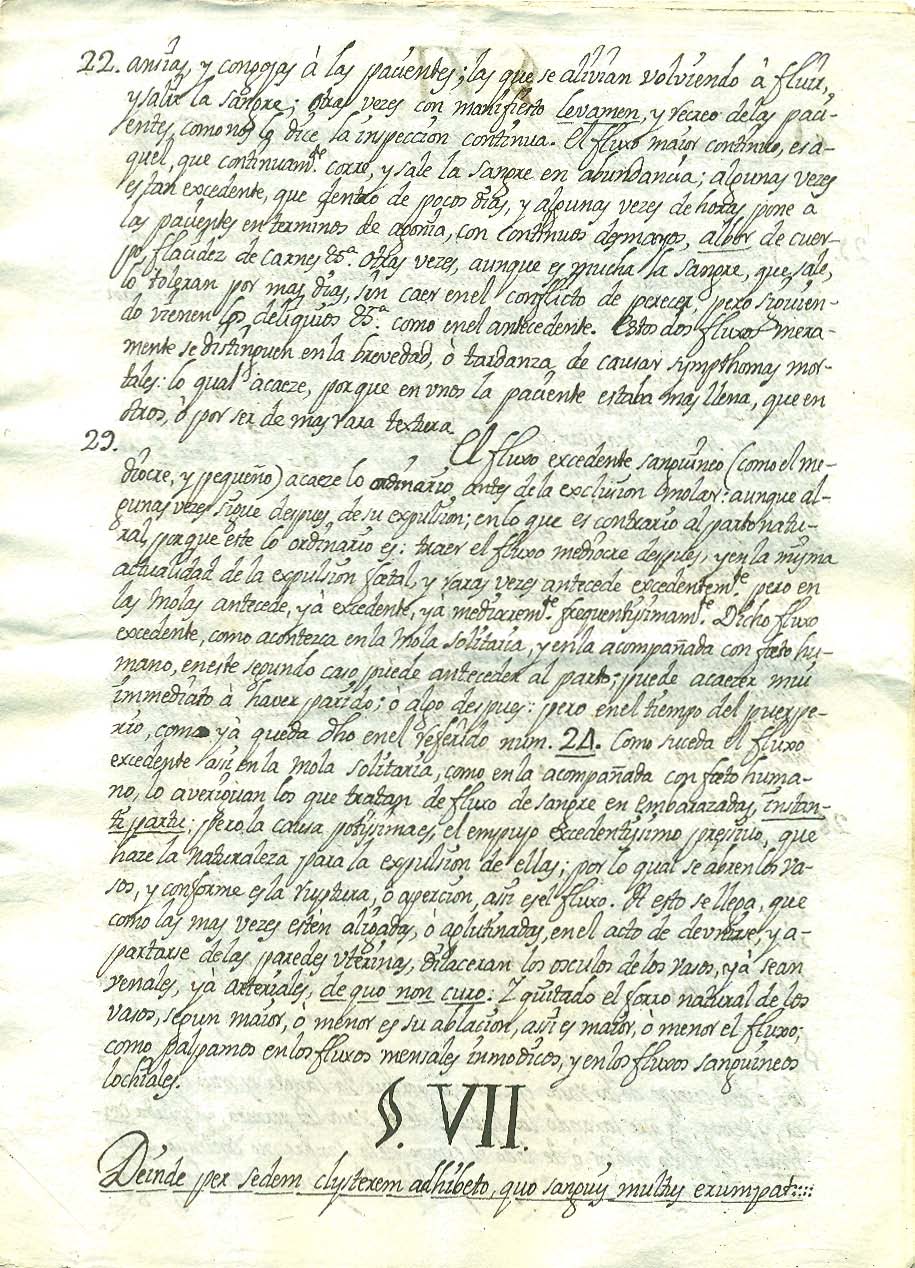 22. ansias, y congojas à las pacientes; las que se alivian volviendo à fluir,
y salir la sangre; otras vezes con manifiesto levamen, y recreo delas paci-
entes, como nos lo dice la inspeccion continua. El fluxo maior continuo, es a-
quel, que continuam.te corre, y sale la sangre en abundancia; algunas vezes
es tan excedente, que dentro de pocos dias, y algunas vezes de horas pone à
las pacientes en terminos de agonia, con continuos desmayos, albor de cuer-
po, flacidez de carnes &.a otras vezes, aunque es mucha la sangre, que sale,
lo toleran por mas dias, sin caer enel conflicto de perecer, pero siguien-
do vienen los deliquios &.a como enel antecedente. Estos dos fluxos mera-
mente se distinguen en la brevedad, ò tardanza de causar sympthomas mor-
tales: lo qual acaeze, porque en unos la paciente estaba mas llena, que en
otros, ò por ser de mas rara textura.
29. El fluxo excedente sanguineo (como el me-
diocre, y pequeño) acaeze lo ordinario, antes de la exclusion molar: aunque al-
gunas vezes sigue despues de su expulsion; en lo que es contrario al parto natu-
ral, porque este lo ordinario es: traer el fluxo mediocre despues, y en la misma
actualidad de la expulsion fœtal, y raras vezes antecede excedentem.te pero en
las Molas antecede, yà excedente, ya mediocrem.te frequentisimam.te. Dicho fluxo
excedente, como acontezca en la Mola solitaria, y en la acompañada con fœto hu-
mano, en este segundo caso puede anteceder al parto; puede acaezer mui
immediato à haver parido; ò algo despues: pero enel tiempo del puerpe-
rio, como yà queda dho enel referido num. 24. Como suceda el fluxo
excedente asi en la Mola solitaria, como en la acompañada con fœto huma-
no, lo averiguan los que tratan de fluxo de sangre en embarazadas, instan-
te partu; pero la causa potisima es, el empujo excedentisimo presivo, que
haze la Naturaleza para la expulsion de ellas; por lo qual se abren los va-
sos, y conforme es la ruptura, ò apercion, asi es el fluxo. A esto se llega, que
como las mas vezes estèn aligadas, ò aglutinadas, en el acto de devulsise, y a-
partarse delas paredes uterinas, dilaceran los osculos de los vasos, yà sean
venales, yà arteriales, de quo non curo: Y quitado el forro natural de los
vasos, segun maior, ò menor es su ablacion, asi es maior, ò menor el fluxo;
como palpamos en los fluxos mensales inmodicos, y en los fluxos sanguineos
lochiales.
§. VII.
Deinde per sedem clysterem adhibeto, quo sanguis multus erumpat::::